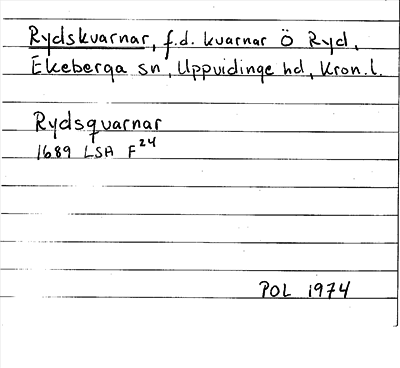 Rydskvarnar, f.d. kvarnar Ö Ryd,
Ekeberga sn, Uppvidinge hd, Kron.l.
Rydsquarnar
1689 LSA F24
POL 1974